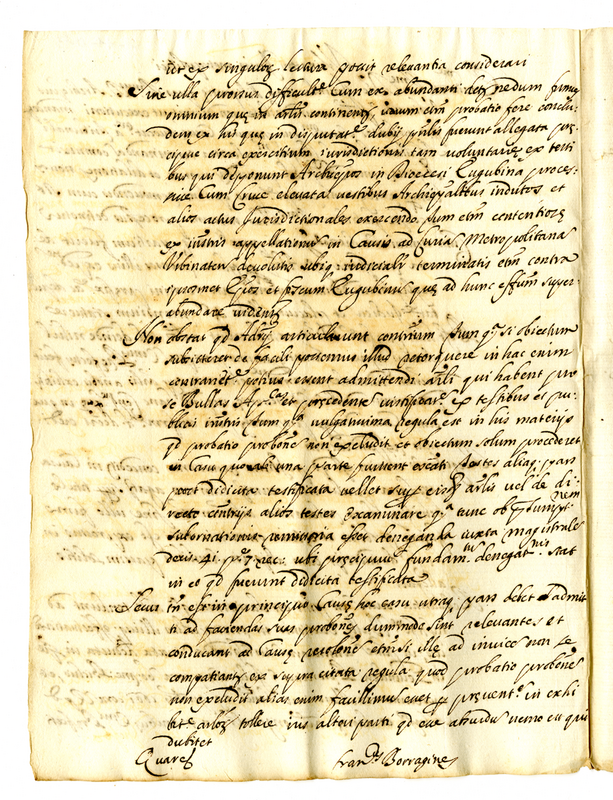 ex singuloz lectura potuit relevantia considerari
Sine ulla prorsus difficult.e Cum ex abundanti det. nedum fumus
omnium quæ in artlis continentr, verum etm probatio fere conclu-
dens ex his quæ in disputat.e dubij pnlis fuerunt allegata præ-
cipue circa exercitium iurisdictionis tam voluntariæ ex testi
bus qui deponunt Archiepos in Diocesi Eugubina proces-
sisse Cum Cruce elevata vestibus Archiepalibus indutos et
alios actus Jurisdictionales exercendo, tum etm contentiosæ
ex iuribus appellationum in Causis ad Curia Metropolitana
Urbinaten devolutis ubiq iudicialr terminatis etm contra
ipsosmet Epos et pscum Eugubinus quæ ad hunc effum super-
abundare videntr
Non obstat qd Advrij articulaverunt contrium tum qa si obiectum
subsisteret de facili possemus illud retorquere in hac enim
contrariet.e potius essent admittendi artli qui habent pro
se Bullas Ap.cas et præcedentes iustificat.s ex testibus et pu-
blicis iuribus tum qa vulgatissima regula est in his materijs
qd probatio probones non excludit et obiectum solum procederet
in Casu quo ab una parte fuissent testes alias pars
post didicita testificata vellet supr eisd artlis vel de di-
recto contrijs alios testes examinare qa tunc ob præsumpt.nem
subornationis remissoria esset deneganda iuxta magistrales
decis. 41. p. 7. rec. ubi præcipuum fundam.tum denegat.nis stat
in eo qd fuerunt didicita testificata
Secus tn est in principio Causæ hoc casu utraq pars debet admit
ti ad faciendas suas probones dummodo sint relevantes et
conducant ad Causæ etsi illæ ad invicem non se
compatiantr ex supra citata regula quod probatio probones
non excludit alias enim facillimum esset præventu in exhi
bite artloz tollere ius alteri parti qd esse absurdus nemo est qui
dubitet
Quare &
Fran.us Borragines